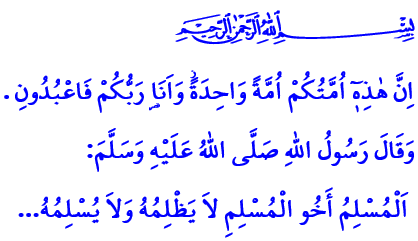 بِسْمِ اللهِ الرَّحْمٰنِ الرَّحِيمِ
اِنَّ هٰذِهٖٓ اُمَّتُكُمْ اُمَّةً وَاحِدَةًۘ وَاَنَا۬ رَبُّكُمْ فَاعْبُدُونِ.
وَقَالَ رَسُولُ اللهِ صَلَّى اللهُ عَلَيْهِ وَسَلَّمَ:
اَلْمُسْلِمُ أَخُو الْمُسْلِمِ لاَ يَظْلِمُهُ وَلاَ يُسْلِمُهُ...